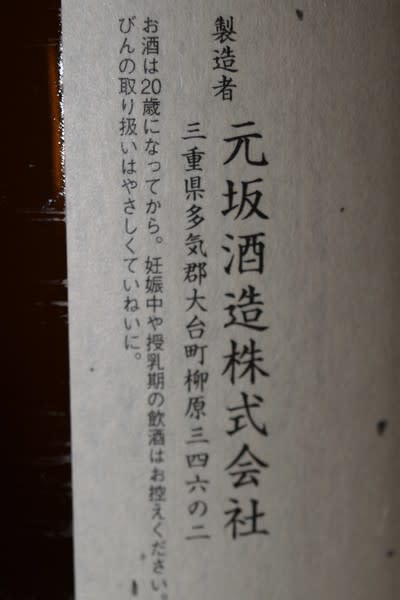 製造者 元坂酒造株式会社
三重県多気郡大台町柳原三四六の二
お酒は20歳になってから。妊娠中や授乳期の飲酒はお控えください。
びんの取り扱いはやさしくていねいに。